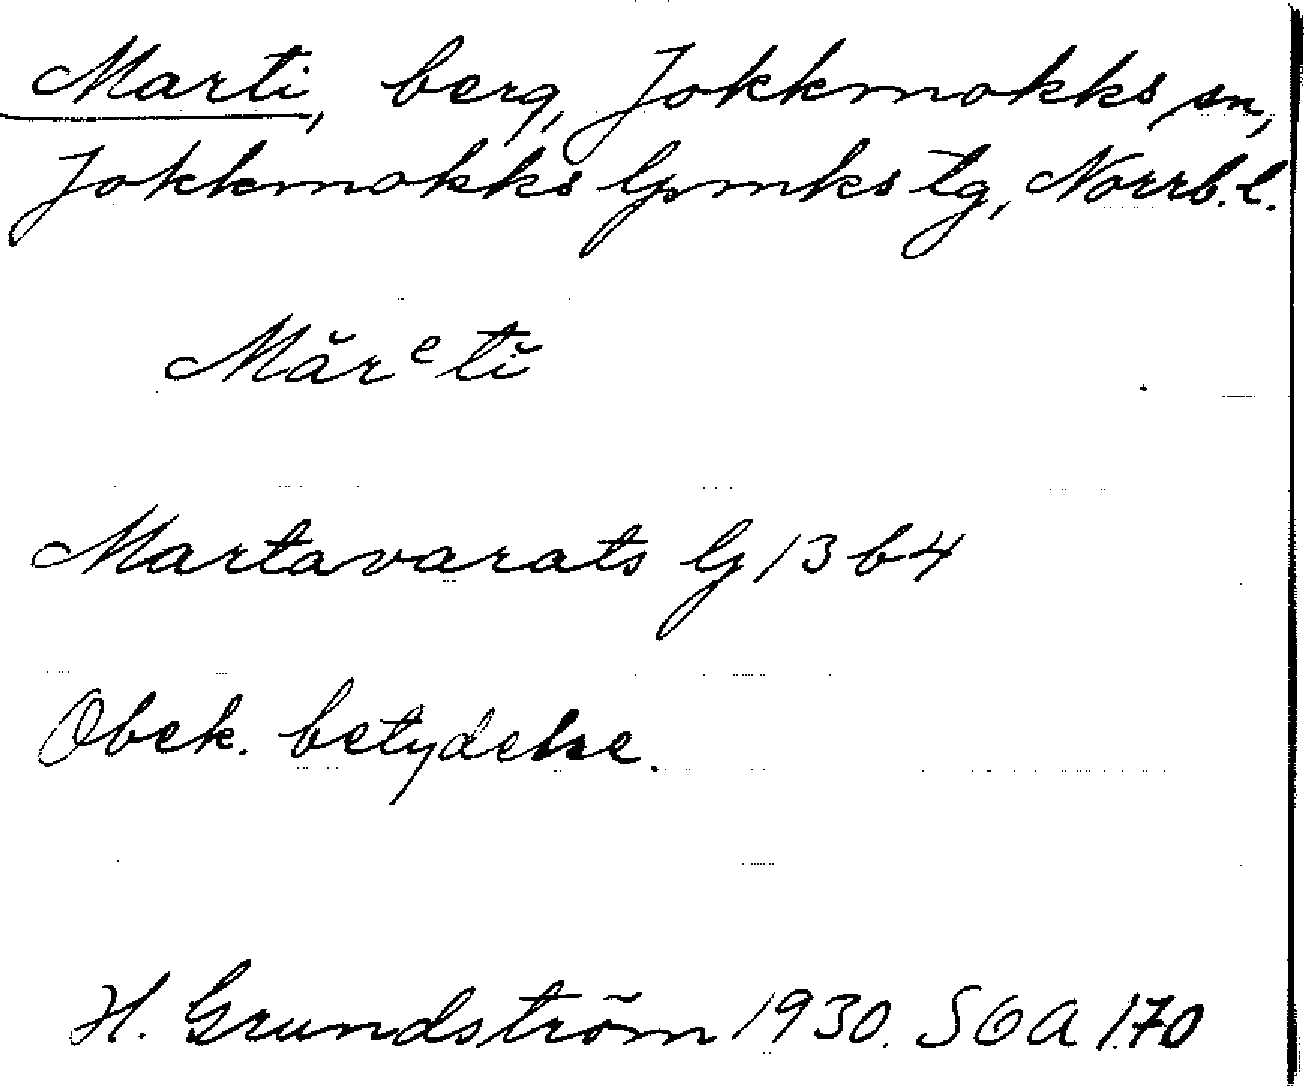 Marti, berg, Jokkmokks sn,
Jokkmokks lpmks tg, Norrb. l.
Mărᵉtĭ
Martavarats lj 13 b 4
Obek. betydelse.
H. Grundström 1930. SOA 170